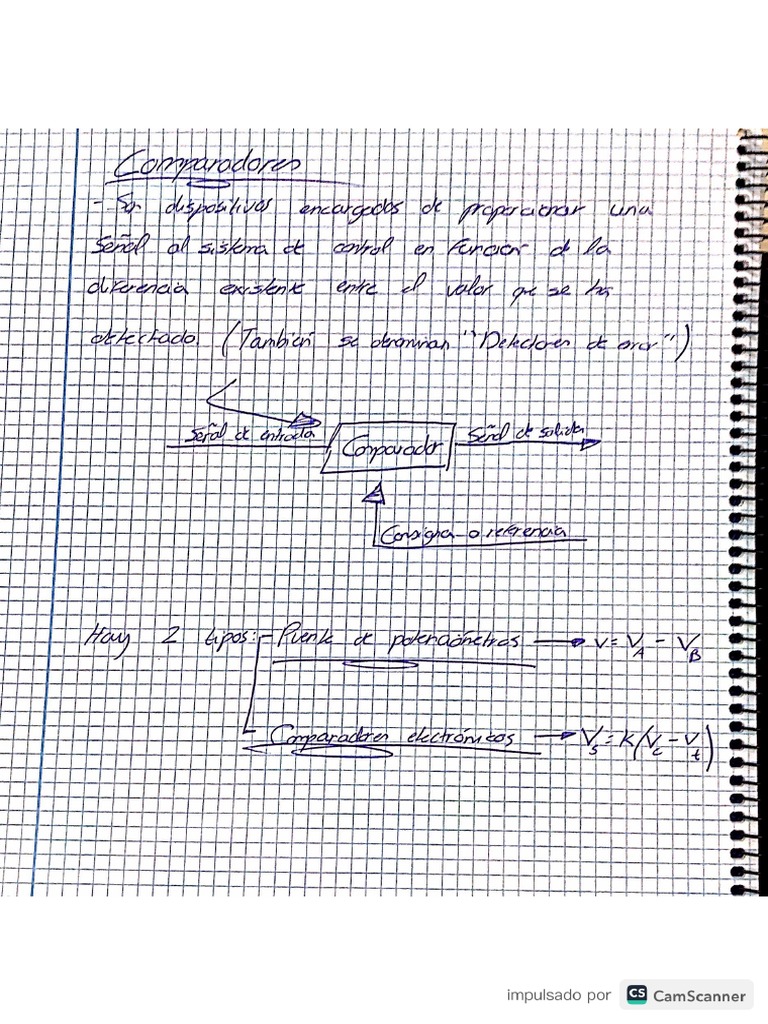 Comparadores
- Son dispositivos encargados de proporcionar una
señal al sistema de control en función de la
diferencia existente entre el valor que se ha
detectado. (También se denominan "Detectores de error")
Señal de entrada
Comparador
Señal de salida
Consigna o referencia
Hay 2 tipos: - Puente de potenciómetros → V = VA - VB
- Comparadores electrónicos → Vs = K(Vc - Vt)
impulsado por CS CamScanner